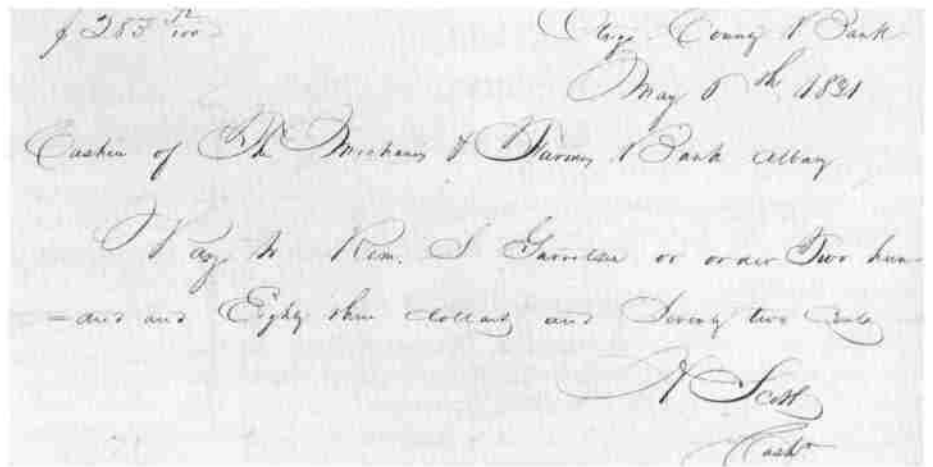 $ 283 72/100 Otsego County Bank
May 6th 1831
Cashier of The Mechanics & Farmers Bank Albany
Pay to Rem. S Garretsee or order Two hun
=dred and Eighty three dollars and Seventy two Cents
A Scott
Cashr